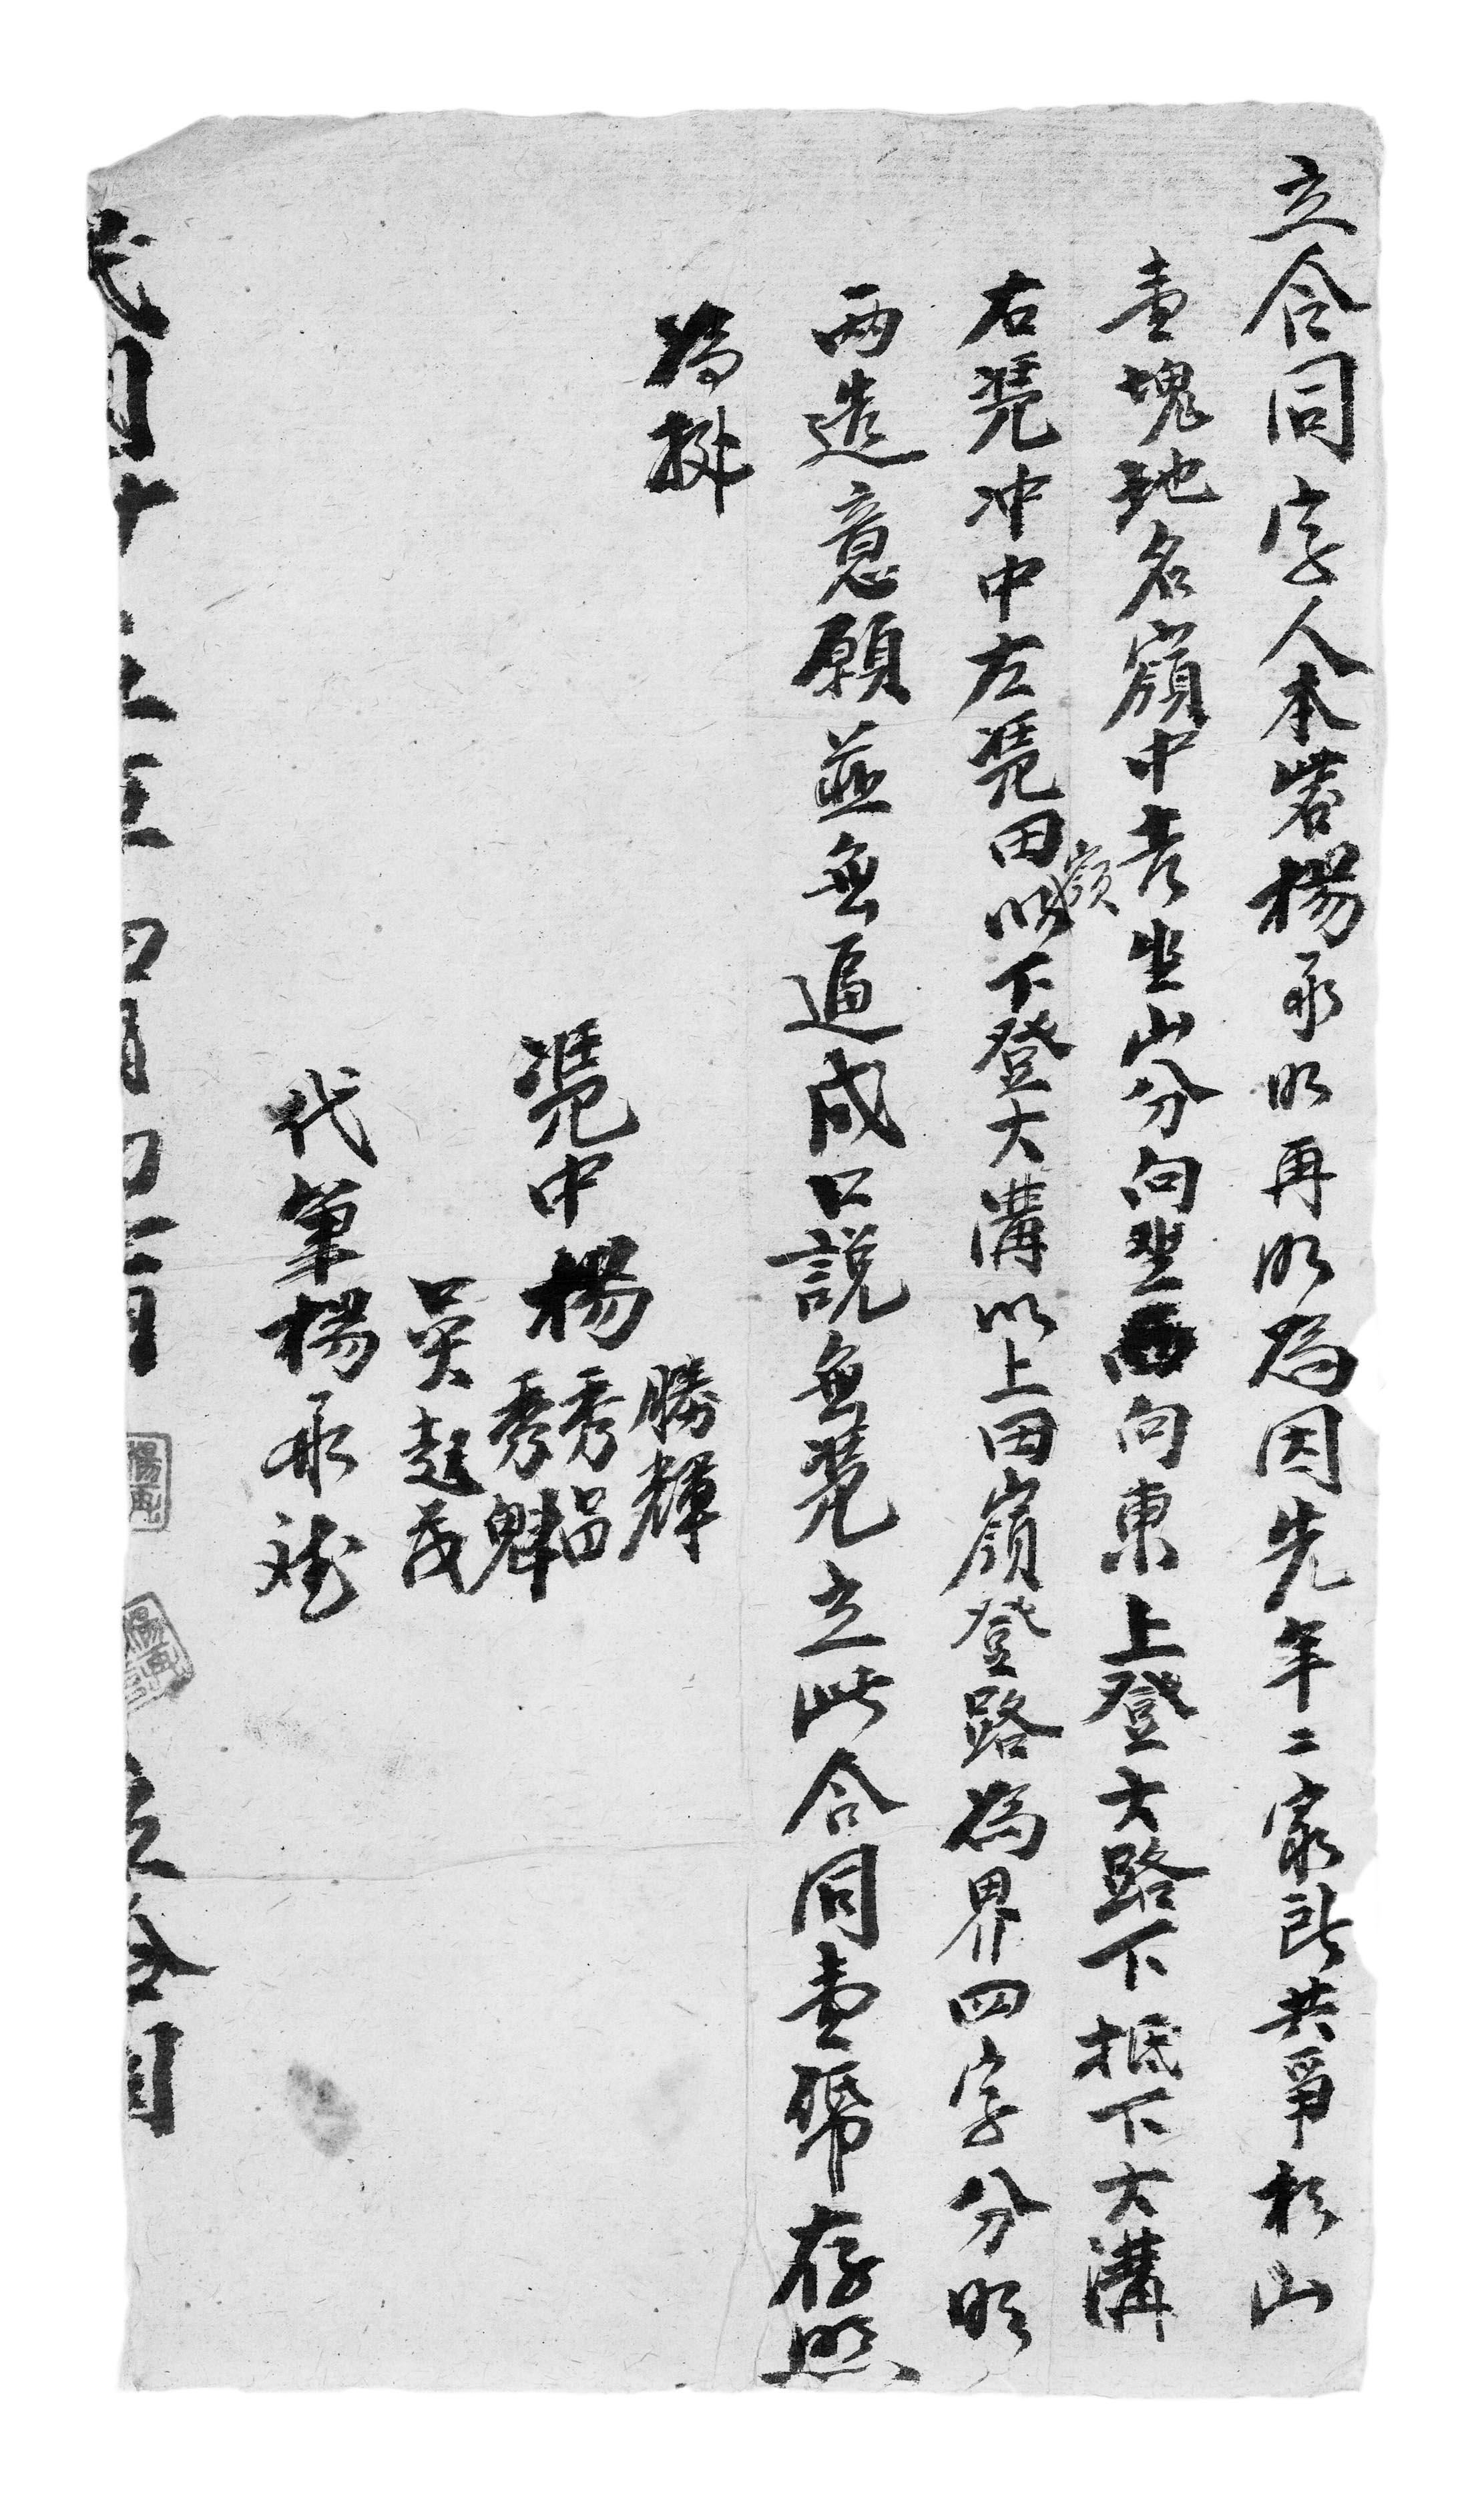 立合同字人本砦楊承明再明為因先年二家所共爭杉山
壹塊地名嶺中老坐山分向坐西向東上登大路下抵下大溝
右凴冲中左凴田嶺以下登大溝以上田嶺登路為界四字分明
兩造意願並無逼成口説無凴立此合同壹帋存照
為拠
勝輝
凴中楊秀昌
秀魁
吳起茂
代筆楊承
四月
立合同